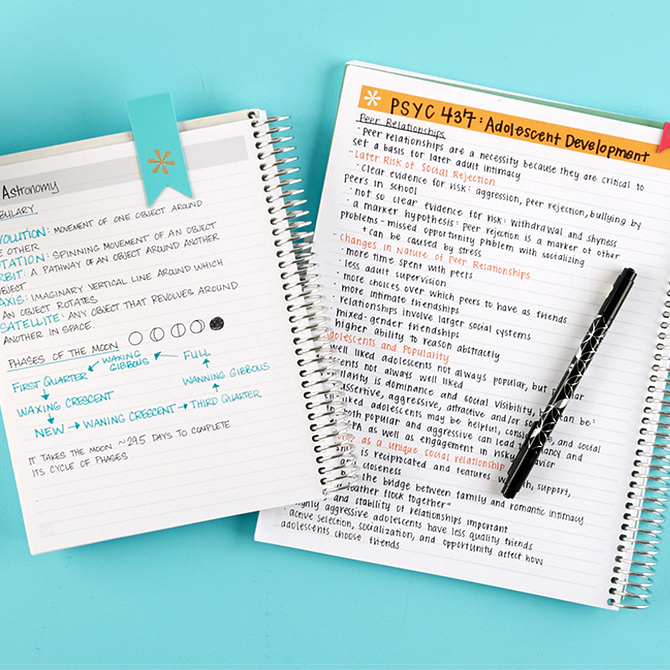 Astronomy
BULARY
VOLUTION: MOVEMENT OF ONE OBJECT AROUND
E OTHER
TATION: SPINNING MOVEMENT OF AN OBJECT
RBIT: A PATHWAY OF AN OBJECT AROUND ANOTHER
BJECT
AXIS: IMAGINARY VERTICAL LINE AROUND WHICH
AN OBJECT ROTATES
SATELLITE: ANY OBJECT THAT REVOLVES AROUND
ANOTHER IN SPACE.
PHASES OF THE MOON
FIRST QUARTER WAXING GIBBOUS FULL
WAXING CRESCENT WANNING GIBBOUS
NEW WANING CRESCENT THIRD QUARTER
IT TAKES THE MOON ~29.5 DAYS TO COMPLETE
ITS CYCLE OF PHASES
PSYC 437: Adolescent Development
Peer Relationships
· peer relationships are a necessity because they are critical to
set a basis for later adult intimacy
- Later Risk of Social Rejection
· clear evidence for risk: aggression, peer rejection, bullying by
peers in school
· not so clear evidence for risk: withdrawal and shyness
· a marker hypothesis: peer rejection is a marker of other
problems - missed opportunity problem with socializing
* can be caused by stress
- Changes in Nature of Peer Relationships
· more time spent with peers
· less adult supervision
· more choices over which peers to have as friends
· more intimate friendships
· relationships involve larger social systems
· mixed-gender friendships
· higher ability to reason abstractly
Adolescents and Popularity
well liked adolescents not always popular, but
nts not always well liked
ularity is dominance and social visibility, can be:
ssertive, aggressive, attractive and/or
ked adolescents may be helpful, and social
oth popular and aggressive can lead
PA as well as engagement in risky
as a unique social relationship
is reciprocated and features support,
closeness
the bridge between family and romantic intimacy
eather flock together"
and stability of relationships important
highly aggressive adolescents have less quality friends
active selection, socialization, and opportunity affect how
adolescents choose friends